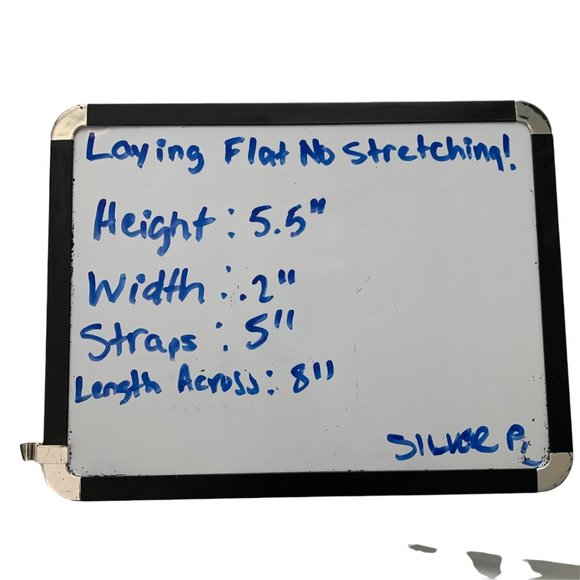 Laying Flat No Stretching!
Height: 5.5"
Width: .2"
Straps: 5"
Length Across: 8"
SILVER PL